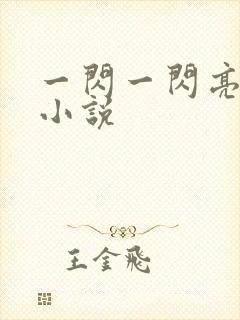 一閃一閃亮
小說
王金飛